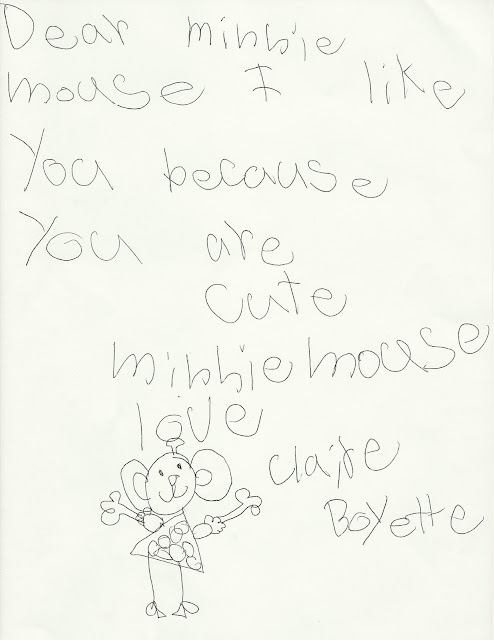 Dear minnie
mouse I like
You because
You are
cute
minnie mouse
love
Claire
Boyette